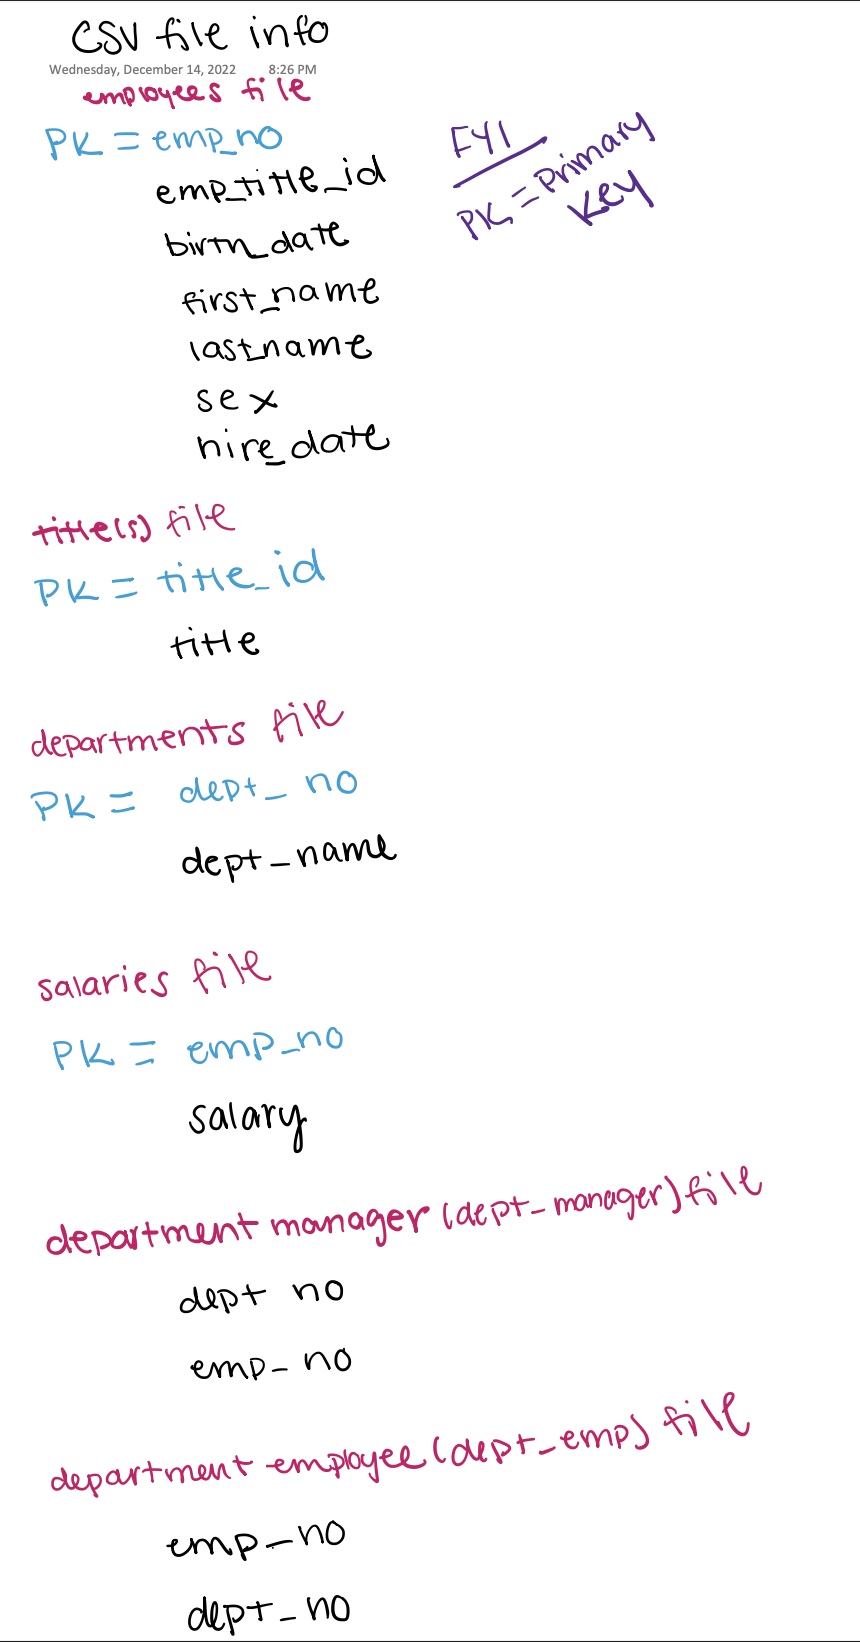 CSV file info
Wednesday, December 14, 2022 8:26 PM
employees file
PK = emp_no
FYI
PK = Primary
Key
emp_title_id
birth_date
first_name
last_name
sex
hire_date
title(s) file
PK = title_id
title
departments file
PK = dept_no
dept_name
salaries file
PK = emp_no
salary
department manager (dept_manager) file
dept no
emp_no
department employee (dept_emp) file
emp_no
dept_no